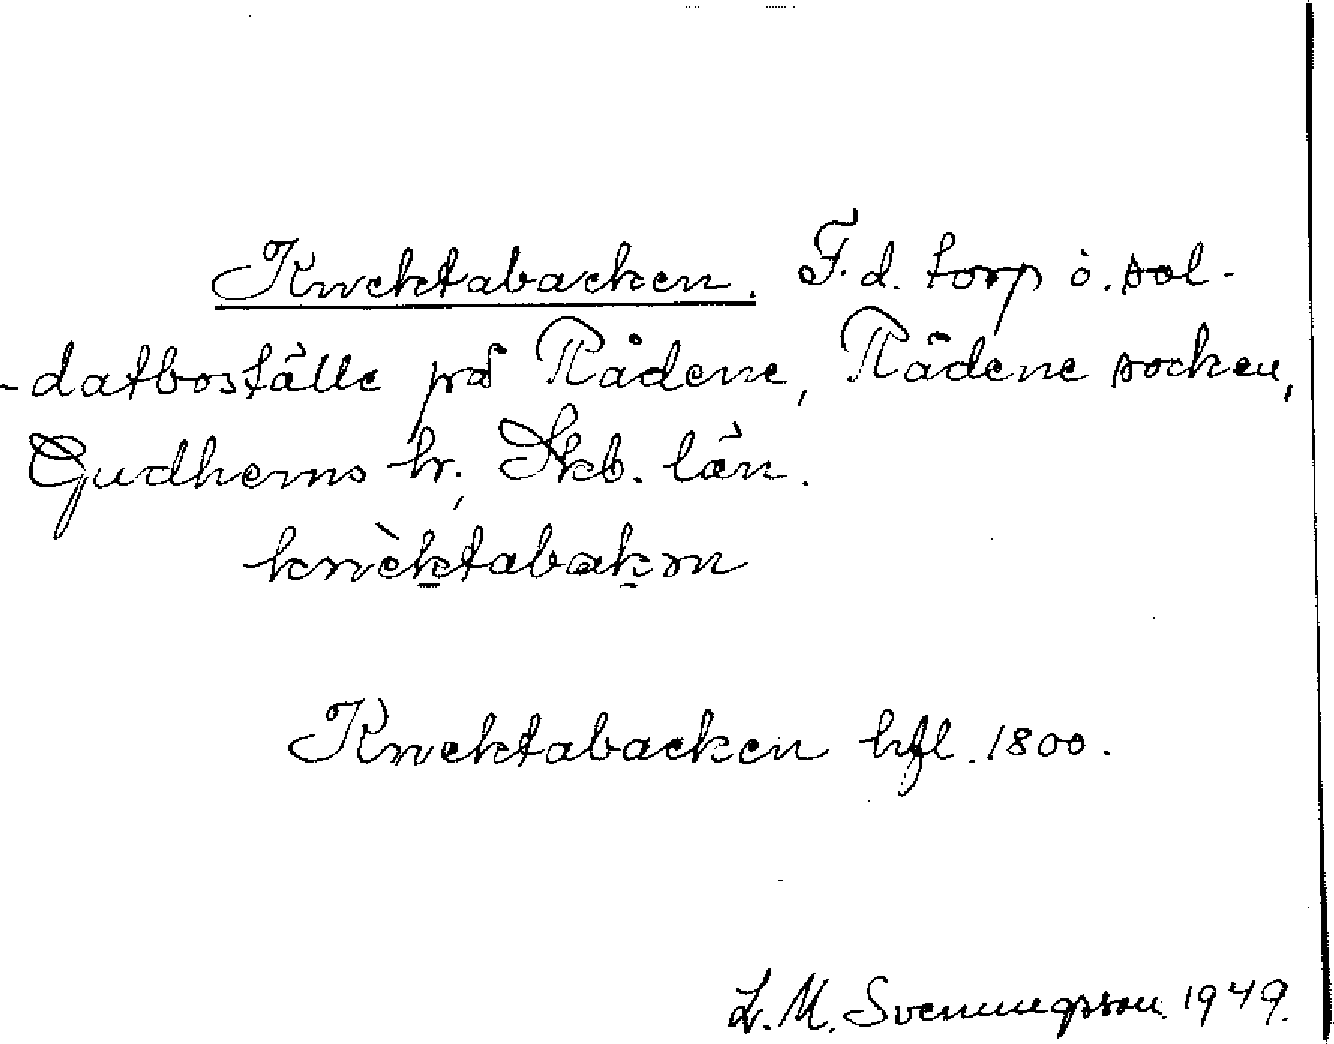 Knektabacken. F. d. torp o. sol-
-datboställe på Rådene, Rådene socken,
Gudhems hr., Skb. län.
knèktabakən
Knektabacken hfl. 1800.
L. M. Svenungsson 1949.